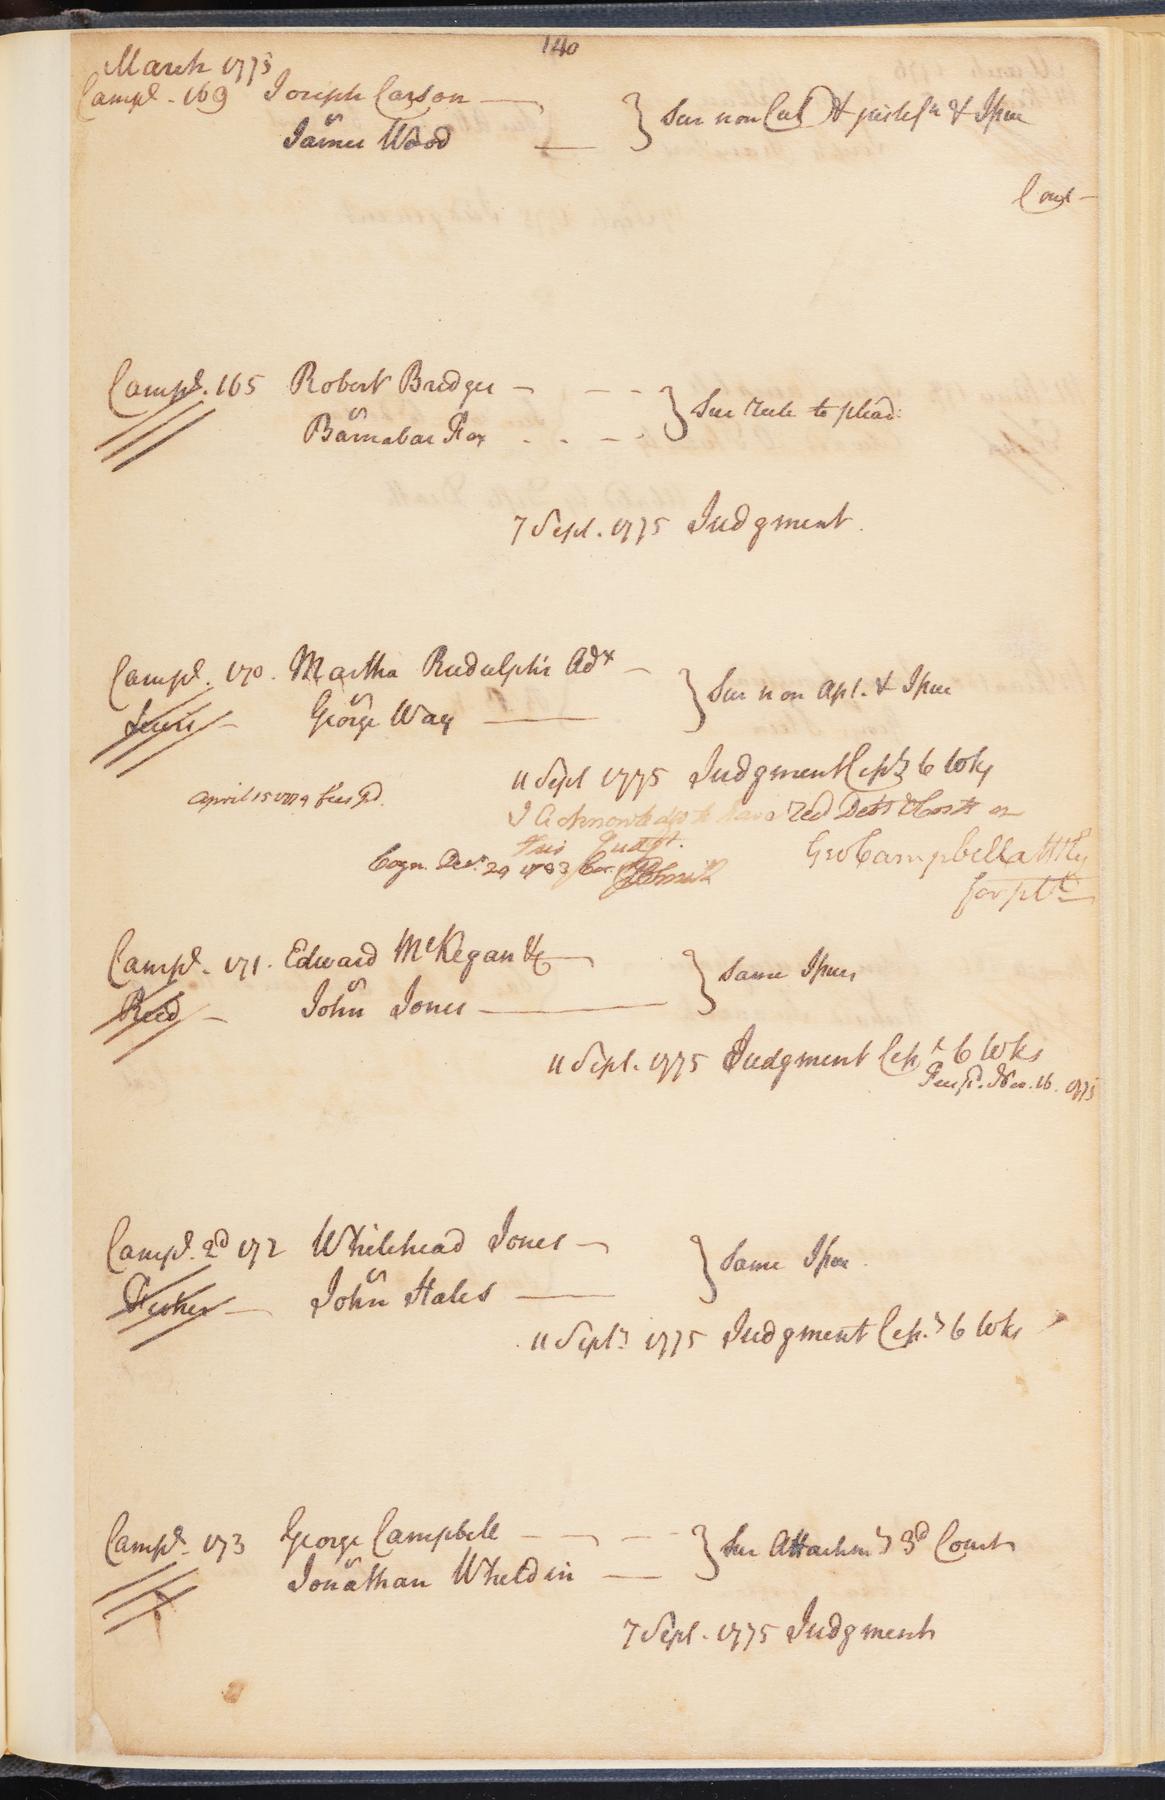 140
March 1775
Campl. 169 Joseph Carson
vs
James Wood
Sur non Cul & justifn & Issue
Cont
Campl. 165 Robert Bridges
vs
Barnabas Fox
Sur rule to plead
7 Sepl. 1775 Judgment
Campl. 170. Martha Rudulph's Adx
Lewis
vs
George Way
Sur non Apt. & Issue
11 Sepl 1775 Judgment Cepr 6 Wks
April 15 1779 fees pd.
I Acknowledge to have recd Debt & Costs on
this Judgt.
Geo Campbell Atty
for pltf
Cogn. Decr. 29 1783 Cor.
Campl. 171. Edward McKegan &c
Reed
vs
John Jones
Same Issue
11 Sepl. 1775 Judgment Cepr 6 Wks
Fees pd. Nov. 16. 1775
Campl. 2d 172 Whitehead Jones
Fisher
vs
John Hales
Same Issue
11 Sepr 1775 Judgment Cepr 6 Wks
Campl. 173 George Campbell
vs
Jonathan Wheldin
Sur Attachmt 3d Court
7 Sepl. 1775 Judgment